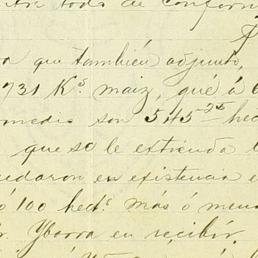 toda de conform
que también adjunto,
931 K.s maiz, qué á 6
son 545 25 hec
que se le extienda
quedaron en existencia e
ó 100 hect.s más ó meno
Ybarra en recibir,